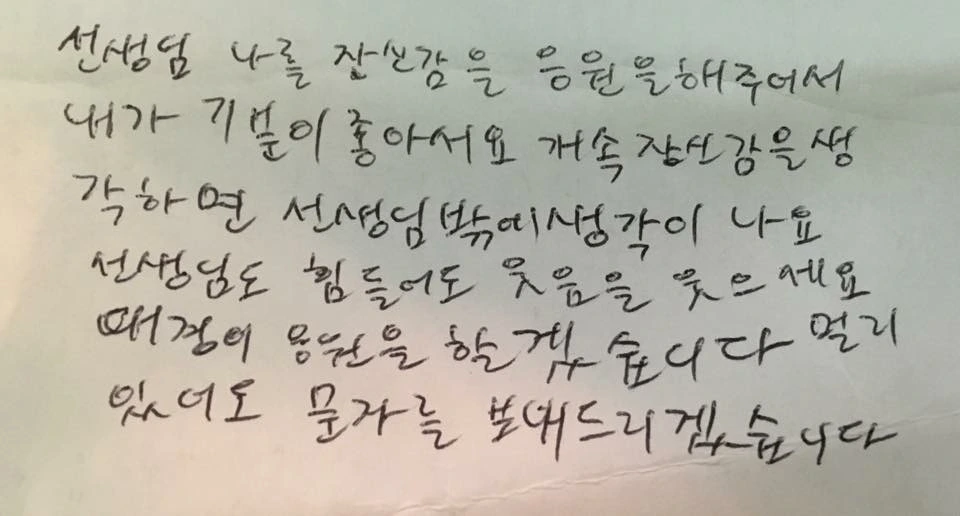 선생님 나를 잔신감을 응원을해주어서
내가 기분이 좋아서요 개속 잔신감을 생
각하면 선생님밖에생각이 나요
선생님도 힘들어도 웃음을 웃으세요
매경이 응원을 할겠숩니다 멀리
있어도 문자를 보내드리겠숩니다